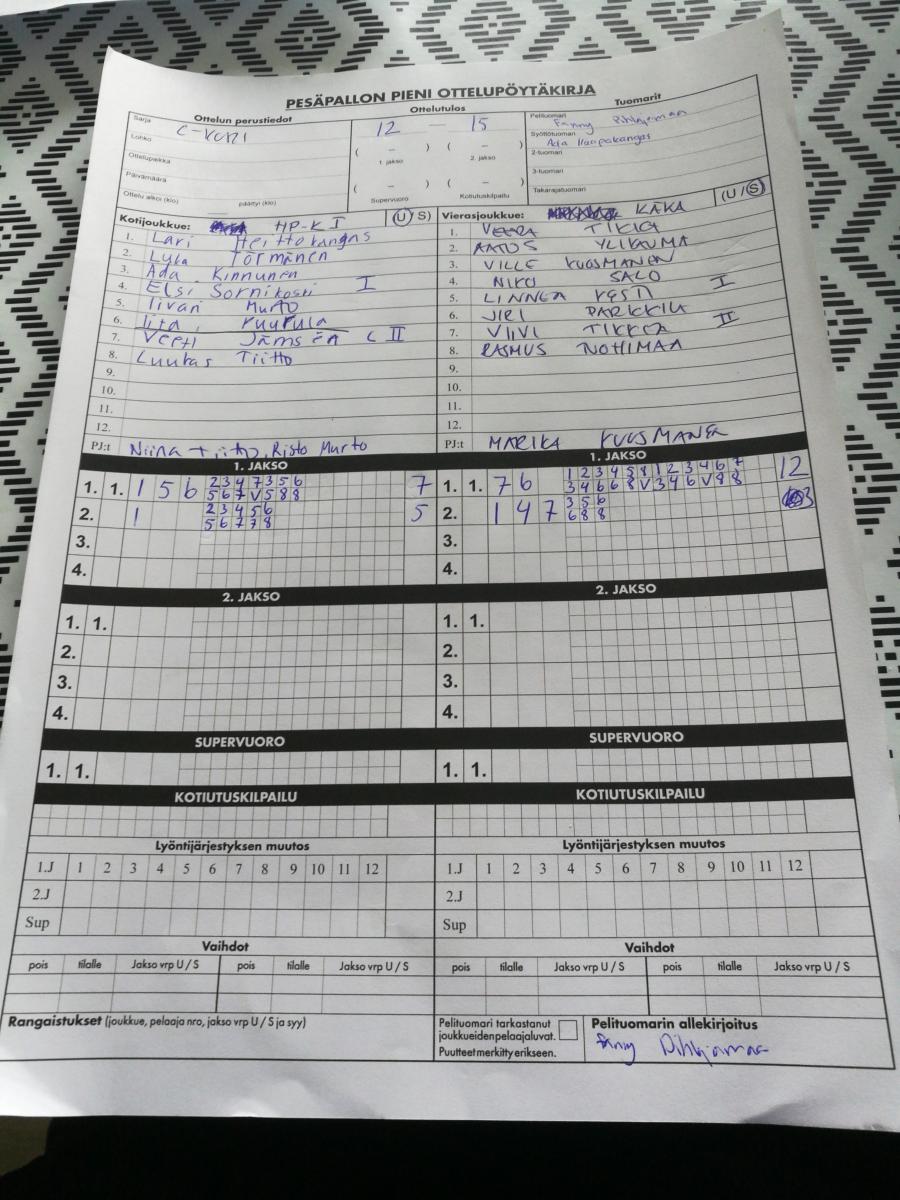 PESÄPALLON PIENI OTTELUPÖYTÄKIRJA
Ottelun perustiedot
Sarja
Lohko
Ottelupaikka
Päivämäärä
Ottelu alkoi (klo) päättyi (klo)
Ottelutulos
12 — 15
( – ) ( – )
1. jakso 2. jakso
( – ) ( – )
Supervuoro Kotiutuskilpailu
Tuomarit
Pelituomari
Fanny Pihlajamaa
Syöttötuomari
Ada
2-tuomari
3-tuomari
Takarajatuomari
Kotijoukkue: HP-K I (U / S)
1. Lari Heittokangas
2. Lyka Törmänen
3. Ada Kinnunen
4. Elsi I
5. Iivari Murto
6. Iita Puurula
7. Veeti Jämsén C II
8. Luukas Tiitto
9.
10.
11.
12.
PJ:t Niina Tiitto, Risto Murto
Vierasjoukkue: KAKA (U / S)
1. VEERA TIKKA
2. AATOS YLIKAUMA
3. VILLE KUOSMANEN
4. NIKO SALO
5. LINNEA VESTI I
6. JIRI PARKKILA
7. VIIVI TIKKA II
8. RASMUS NOTIMAA
9.
10.
11.
12.
PJ:t MARIKA KUOSMANEN
1. JAKSO
1. 1. 1 5 6 2 3 4 7 3 5 6 7
5 6 7 V 5 8 8
2. 1 2 3 4 5 6 5
5 6 7 7 8
3.
4.
1. JAKSO
1. 1. 7 6 1 2 3 4 5 8 1 2 3 4 6 7 12
3 4 6 6 8 V 3 4 6 V 8 8
2. 1 4 7 3 5 6 3
6 8 8
3.
4.
2. JAKSO
1. 1.
2.
3.
4.
2. JAKSO
1. 1.
2.
3.
4.
SUPERVUORO
1. 1.
SUPERVUORO
1. 1.
KOTIUTUSKILPAILU
KOTIUTUSKILPAILU
Lyöntijärjestyksen muutos
1.J 1 2 3 4 5 6 7 8 9 10 11 12
2.J
Sup
Lyöntijärjestyksen muutos
1.J 1 2 3 4 5 6 7 8 9 10 11 12
2.J
Sup
Vaihdot
pois tilalle Jakso vrp U / S pois tilalle Jakso vrp U / S
Vaihdot
pois tilalle Jakso vrp U / S pois tilalle Jakso vrp U / S
Rangaistukset (joukkue, pelaaja nro, jakso vrp U / S ja syy)
Pelituomari tarkastanut
joukkueiden pelaajaluvat.
Puutteet merkitty erikseen.
Pelituomarin allekirjoitus
Fanny Pihlajamaa